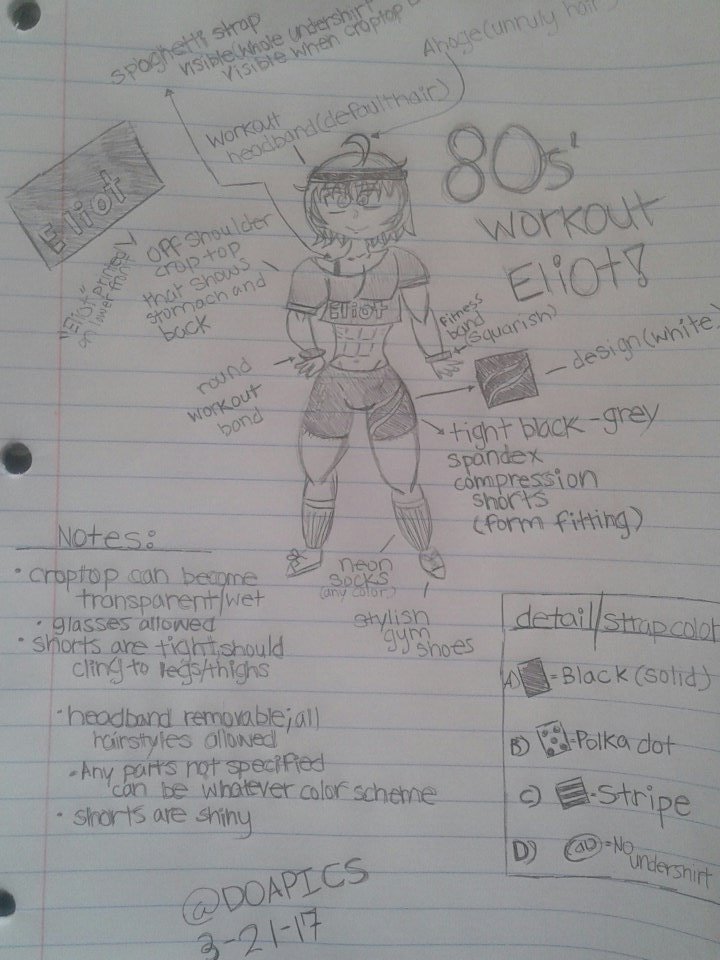 spaghetti strap
visible(whole undershirt
visible when croptop
Ahoge(unruly hair)
workout
headband(default hair)
80s'
workout
Eliot!
Eliot
"Eliot" printed
on lower front
off shoulder
crop top
that shows
stomach and
back
Eliot
fitness
band
(squarish)
design(white)
round
workout
band
tight black-grey
spandex
compression
shorts
(form fitting)
neon
socks
(any color)
stylish
gym
shoes
Notes:
• croptop can become
transparent/wet
• glasses allowed
• shorts are tight;should
cling to legs/thighs
• headband removable;all
hairstyles allowed
• Any parts not specified
can be whatever color scheme
• shorts are shiny
detail/strap color
A) =Black(solid)
B) =Polka dot
C) =Stripe
D) =No
undershirt
@DOAPICS
3-21-17